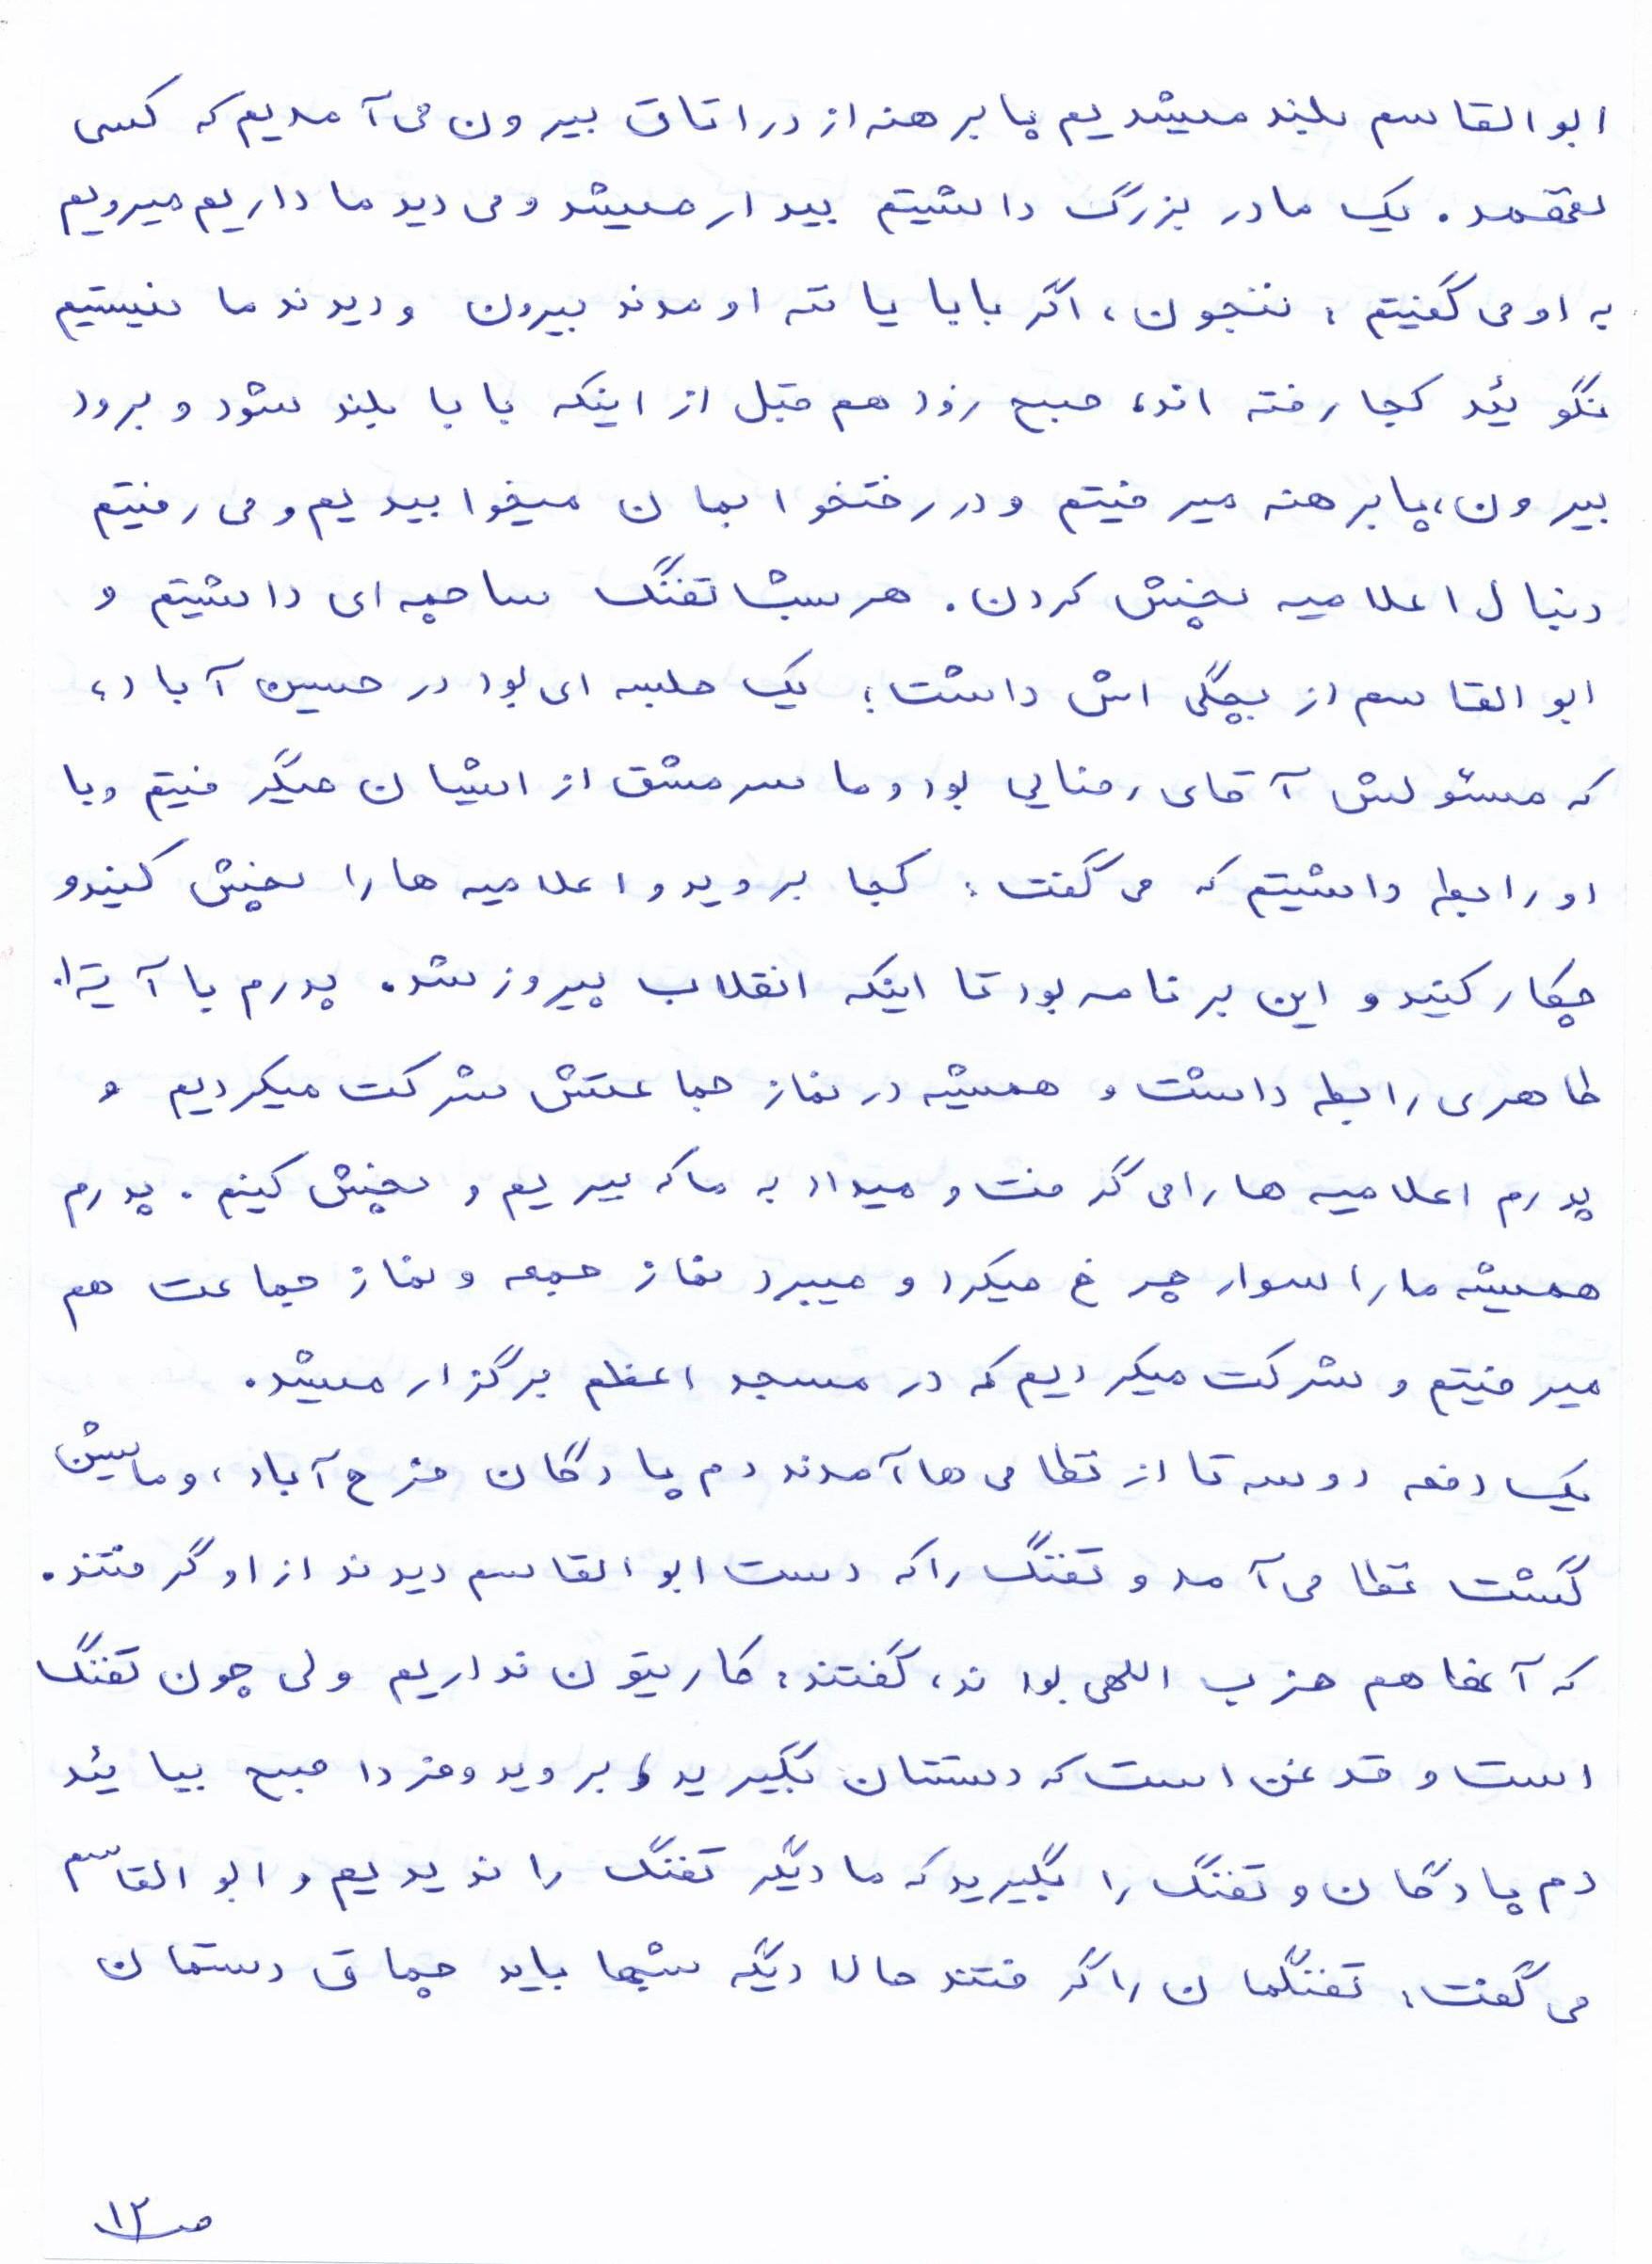 ابوالقاسم بلند میشدیم پا برهنه از در اتاق بیرون می آمدیم که کسی
نفهمد. یک مادر بزرگ داشتیم بیدار میشد و می دید ما داریم میرویم
به او می گفتیم: ننجون، اگر بابا یا ننه اومدند بیرون و دیدند ما نیستیم
نگوئید کجا رفته اند، صبح زود هم قبل از اینکه بابا بلند شود و برود
بیرون، پا برهنه میرفتیم و در رختخوابمان میخوابیدیم و می رفتیم
دنبال اعلامیه پخش کردن. هر شب تفنگ ساچمه ای داشتیم و
ابوالقاسم از بچگی اش داشت؛ یک جلسه ای بود در حسین آباد،
که مسئولش آقای رضایی بود و ما سرمشق از ایشان میگرفتیم و با
او رابطه داشتیم که می گفت: کجا بروید و اعلامیه ها را پخش کنید و
چکار کنید و این برنامه بود تا اینکه انقلاب پیروز شد. پدرم با آیة ا..
طاهری رابطه داشت و همیشه در نماز جماعتش شرکت میکردیم و
پدرم اعلامیه ها را می گرفت و میداد به ما که ببریم و پخش کنیم. پدرم
همیشه ما را سوار چرخ میکرد و میبرد نماز جمعه و نماز جماعت هم
میرفتیم و شرکت میکردیم که در مسجد اعظم برگزار میشد.
یک دفعه دو سه تا از نظامی ها آمدند دم پادگان فرح آباد، و ماشین
گشت نظامی آمد و تفنگ را که دست ابوالقاسم دیدند از او گرفتند.
که آنها هم حزب اللهی بودند، گفتند: کاریتون نداریم ولی چون تفنگ
است و قدغن است که دستتان بگیرید، بروید و فردا صبح بیائید
دم پادگان و تفنگ را بگیرید که ما دیگر تفنگ را ندیدیم و ابوالقاسم
می گفت: تفنگمان را گرفتند حالا دیگه شبها باید چماق دستمان
ص۱۲